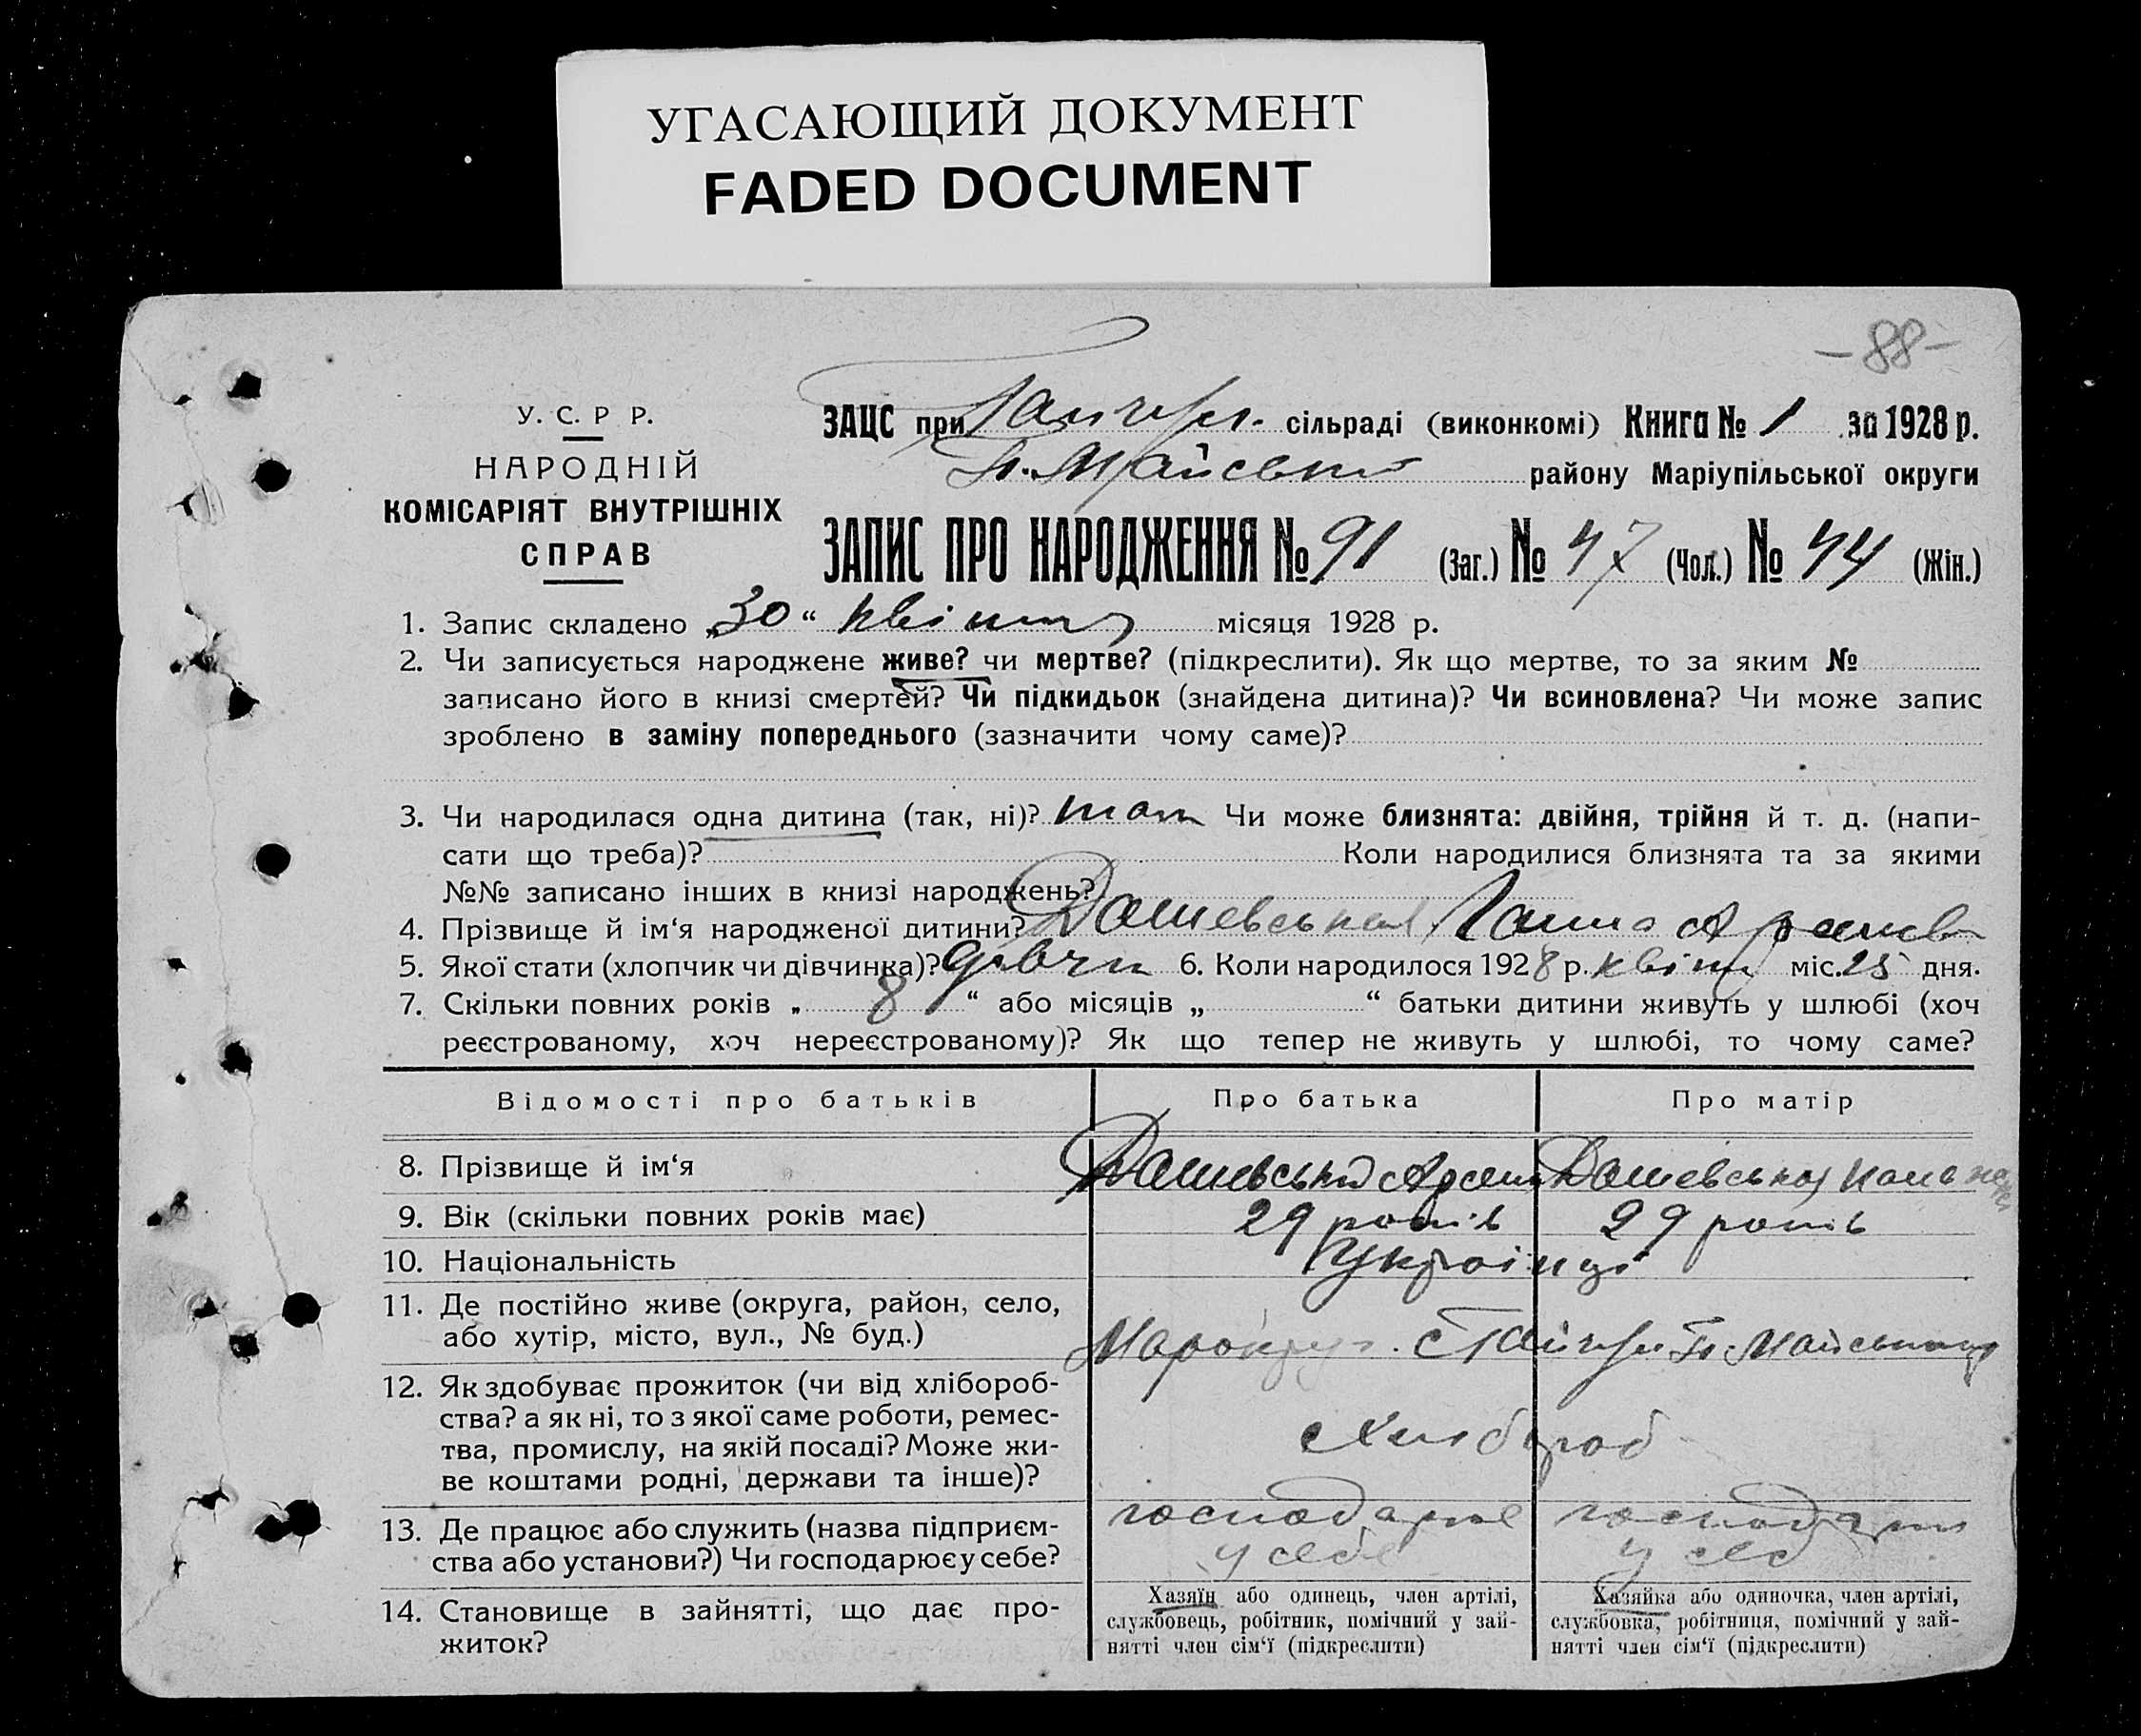 УГАСАЮЩИЙ ДОКУМЕНТ
FADED DOCUMENT
-88-
У. С. Р Р.
НАРОДНІЙ
КОМІСАРІЯТ ВНУТРІШНІХ
СПРАВ
ЗАЦС при сільраді (виконкомі) Книга № 1 за 1928 р.
району Маріупільської округи
ЗАПИС ПРО НАРОДЖЕННЯ № 91 (Заг.) № 47 (Чол.) № 44 (Жін.)
1. Запис складено „30“ квітня місяця 1928 р.
2. Чи записується народжене живе? чи мертве? (підкреслити). Як що мертве, то за яким №
записано його в книзі смертей? Чи підкидьок (знайдена дитина)? Чи всиновлена? Чи може запис
зроблено в заміну попереднього (зазначити чому саме)?
3. Чи народилася одна дитина (так, ні)? так Чи може близнята: двійня, трійня й т. д. (напи-
сати що треба)? Коли народилися близнята та за якими
№№ записано інших в книзі народжень?
4. Прізвище й ім‘я народженої дитини? Дашевська Ганна
5. Якої стати (хлопчик чи дівчинка)? дівчи 6. Коли народилося 1928 р. квітн міс. 25 дня.
7. Скільки повних років „ 8 “ або місяців „ “ батьки дитини живуть у шлюбі (хоч
реєстрованому, хоч нереєстрованому)? Як що тепер не живуть у шлюбі, то чому саме?
Відомості про батьків Про батька Про матір
8. Прізвище й ім‘я Дашевський Дашевська
9. Вік (скільки повних років має) 29 років 29 років
10. Національність Українці
11. Де постійно живе (округа, район, село,
або хутір, місто, вул., № буд.)
12. Як здобуває прожиток (чи від хлібороб-
ства? а як ні, то з якої саме роботи, ремес-
тва, промислу, на якій посаді? Може жи-
ве коштами родні, держави та інше)?
Хлібороб
13. Де працює або служить (назва підприєм-
ства або установи?) Чи господарює у себе?
господарює господарює
у себе у себе
14. Становище в зайнятті, що дає про-
житок?
Хазяїн або одинець, член артілі,
службовець, робітник, помічний у зай-
нятті член сім‘ї (підкреслити)
Хазяйка або одиночка, член артілі,
службовка, робітниця, помічний у зай-
нятті член сім‘ї (підкреслити)